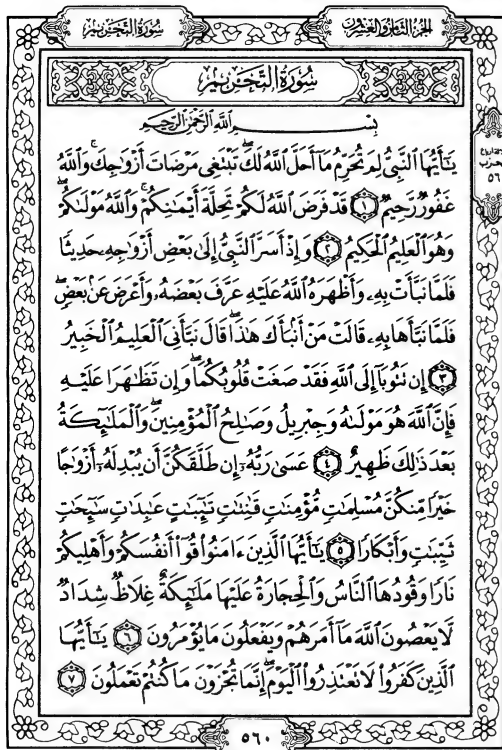 سُورَةُ التَّحْرِيمِ
الجُزْءُ الثَّامِنُ وَالعِشْرُونَ
سُورَةُ التَّحْرِيمِ
بِسْمِ اللَّهِ الرَّحْمَٰنِ الرَّحِيمِ
يَٰٓأَيُّهَا ٱلنَّبِىُّ لِمَ تُحَرِّمُ مَآ أَحَلَّ ٱللَّهُ لَكَۖ تَبْتَغِى مَرْضَاتَ أَزْوَٰجِكَۚ وَٱللَّهُ
غَفُورٌ رَّحِيمٌ ١ قَدْ فَرَضَ ٱللَّهُ لَكُمْ تَحِلَّةَ أَيْمَٰنِكُمْۚ وَٱللَّهُ مَوْلَىٰكُمْۖ
وَهُوَ ٱلْعَلِيمُ ٱلْحَكِيمُ ٢ وَإِذْ أَسَرَّ ٱلنَّبِىُّ إِلَىٰ بَعْضِ أَزْوَٰجِهِۦ حَدِيثًا
فَلَمَّا نَبَّأَتْ بِهِۦ وَأَظْهَرَهُ ٱللَّهُ عَلَيْهِ عَرَّفَ بَعْضَهُۥ وَأَعْرَضَ عَنۢ بَعْضٍۖ
فَلَمَّا نَبَّأَهَا بِهِۦ قَالَتْ مَنْ أَنۢبَأَكَ هَٰذَاۖ قَالَ نَبَّأَنِىَ ٱلْعَلِيمُ ٱلْخَبِيرُ
٣ إِن تَتُوبَآ إِلَى ٱللَّهِ فَقَدْ صَغَتْ قُلُوبُكُمَاۖ وَإِن تَظَٰهَرَا عَلَيْهِ
فَإِنَّ ٱللَّهَ هُوَ مَوْلَىٰهُ وَجِبْرِيلُ وَصَٰلِحُ ٱلْمُؤْمِنِينَۖ وَٱلْمَلَٰٓئِكَةُ
بَعْدَ ذَٰلِكَ ظَهِيرٌ ٤ عَسَىٰ رَبُّهُۥٓ إِن طَلَّقَكُنَّ أَن يُبْدِلَهُۥٓ أَزْوَٰجًا
خَيْرًا مِّنكُنَّ مُسْلِمَٰتٍ مُّؤْمِنَٰتٍ قَٰنِتَٰتٍ تَٰٓئِبَٰتٍ عَٰبِدَٰتٍ سَٰٓئِحَٰتٍ
ثَيِّبَٰتٍ وَأَبْكَارًا ٥ يَٰٓأَيُّهَا ٱلَّذِينَ ءَامَنُوا۟ قُوٓا۟ أَنفُسَكُمْ وَأَهْلِيكُمْ
نَارًا وَقُودُهَا ٱلنَّاسُ وَٱلْحِجَارَةُ عَلَيْهَا مَلَٰٓئِكَةٌ غِلَاظٌ شِدَادٌ
لَّا يَعْصُونَ ٱللَّهَ مَآ أَمَرَهُمْ وَيَفْعَلُونَ مَا يُؤْمَرُونَ ٦ يَٰٓأَيُّهَا
ٱلَّذِينَ كَفَرُوا۟ لَا تَعْتَذِرُوا۟ ٱلْيَوْمَۖ إِنَّمَا تُجْزَوْنَ مَا كُنتُمْ تَعْمَلُونَ ٧
٥٦٠